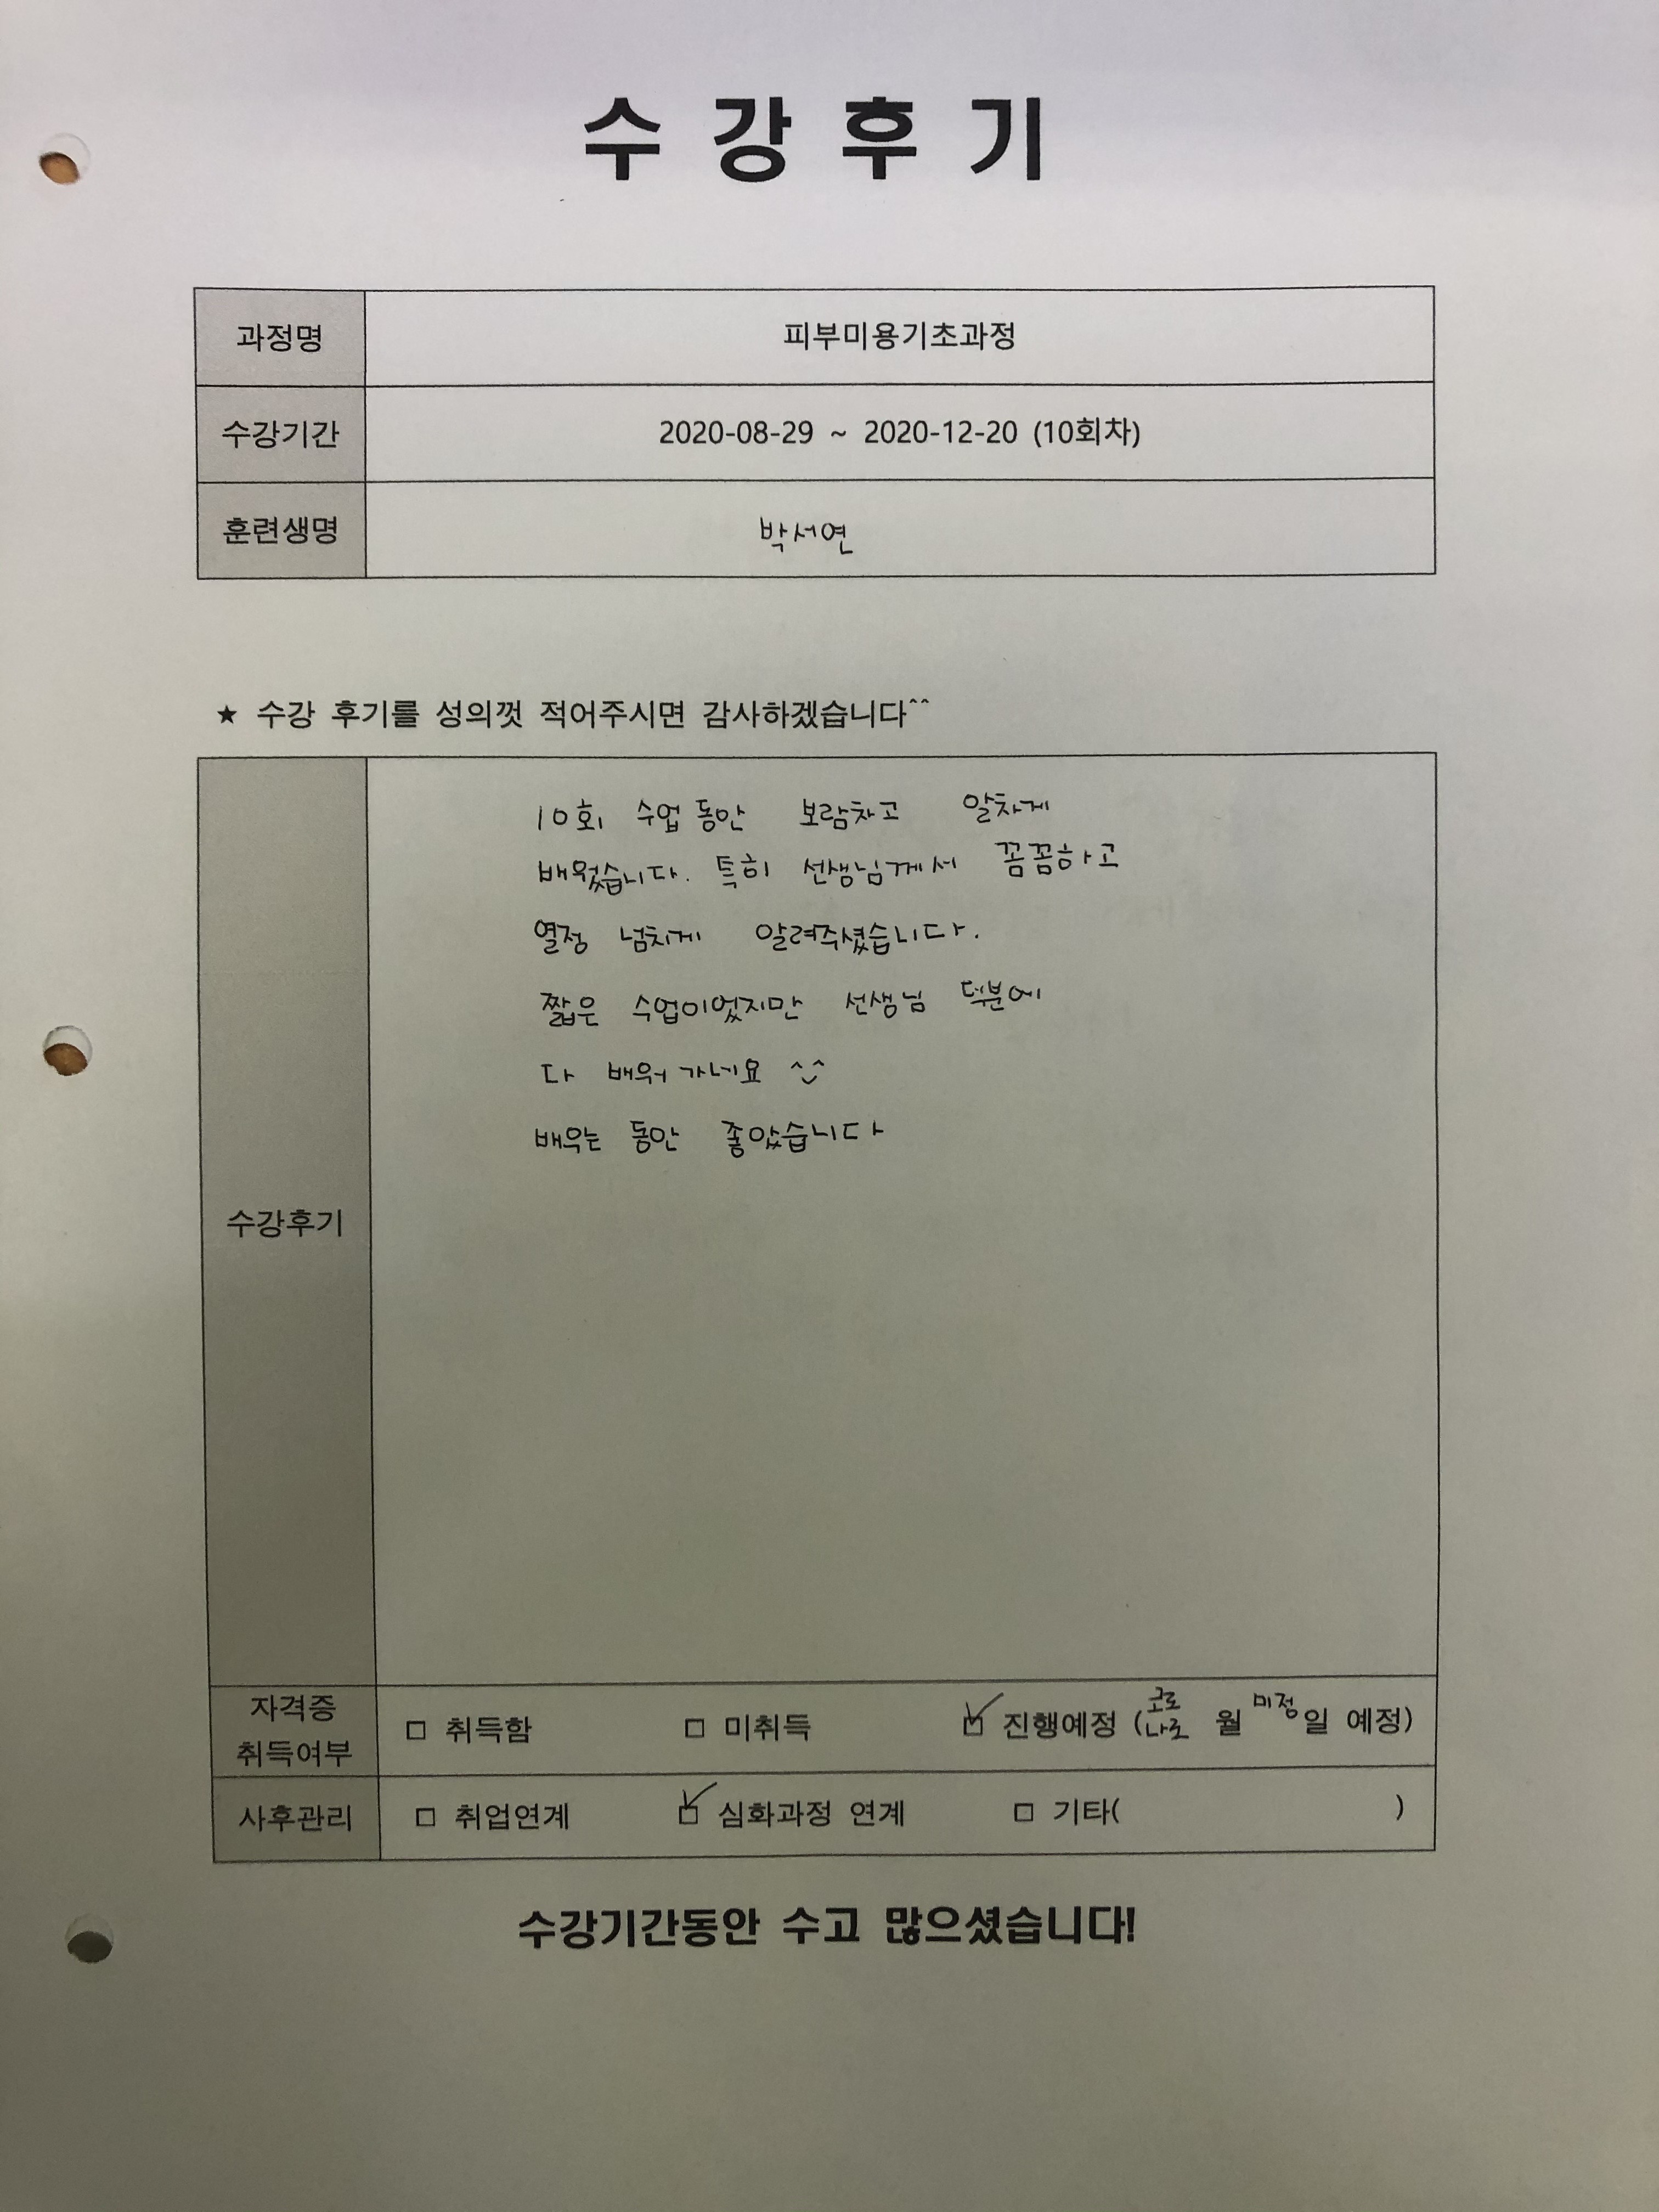 수 강 후 기
과정명 피부미용기초과정
수강기간 2020-08-29 ~ 2020-12-20 (10회차)
훈련생명 박서연
★ 수강 후기를 성의껏 적어주시면 감사하겠습니다^^
10회 수업 동안 보람차고 알차게
배웠습니다. 특히 선생님께서 꼼꼼하고
열정 넘치게 알려주셨습니다.
짧은 수업이었지만 선생님 덕분에
다 배워 가네요 ^^
배우는 동안 좋았습니다
수강후기
자격증
취득여부
□ 취득함 □ 미취득 ☑ 진행예정 ( 월 미정일 예정)
사후관리 □ 취업연계 ☑ 심화과정 연계 □ 기타( )
수강기간동안 수고 많으셨습니다!